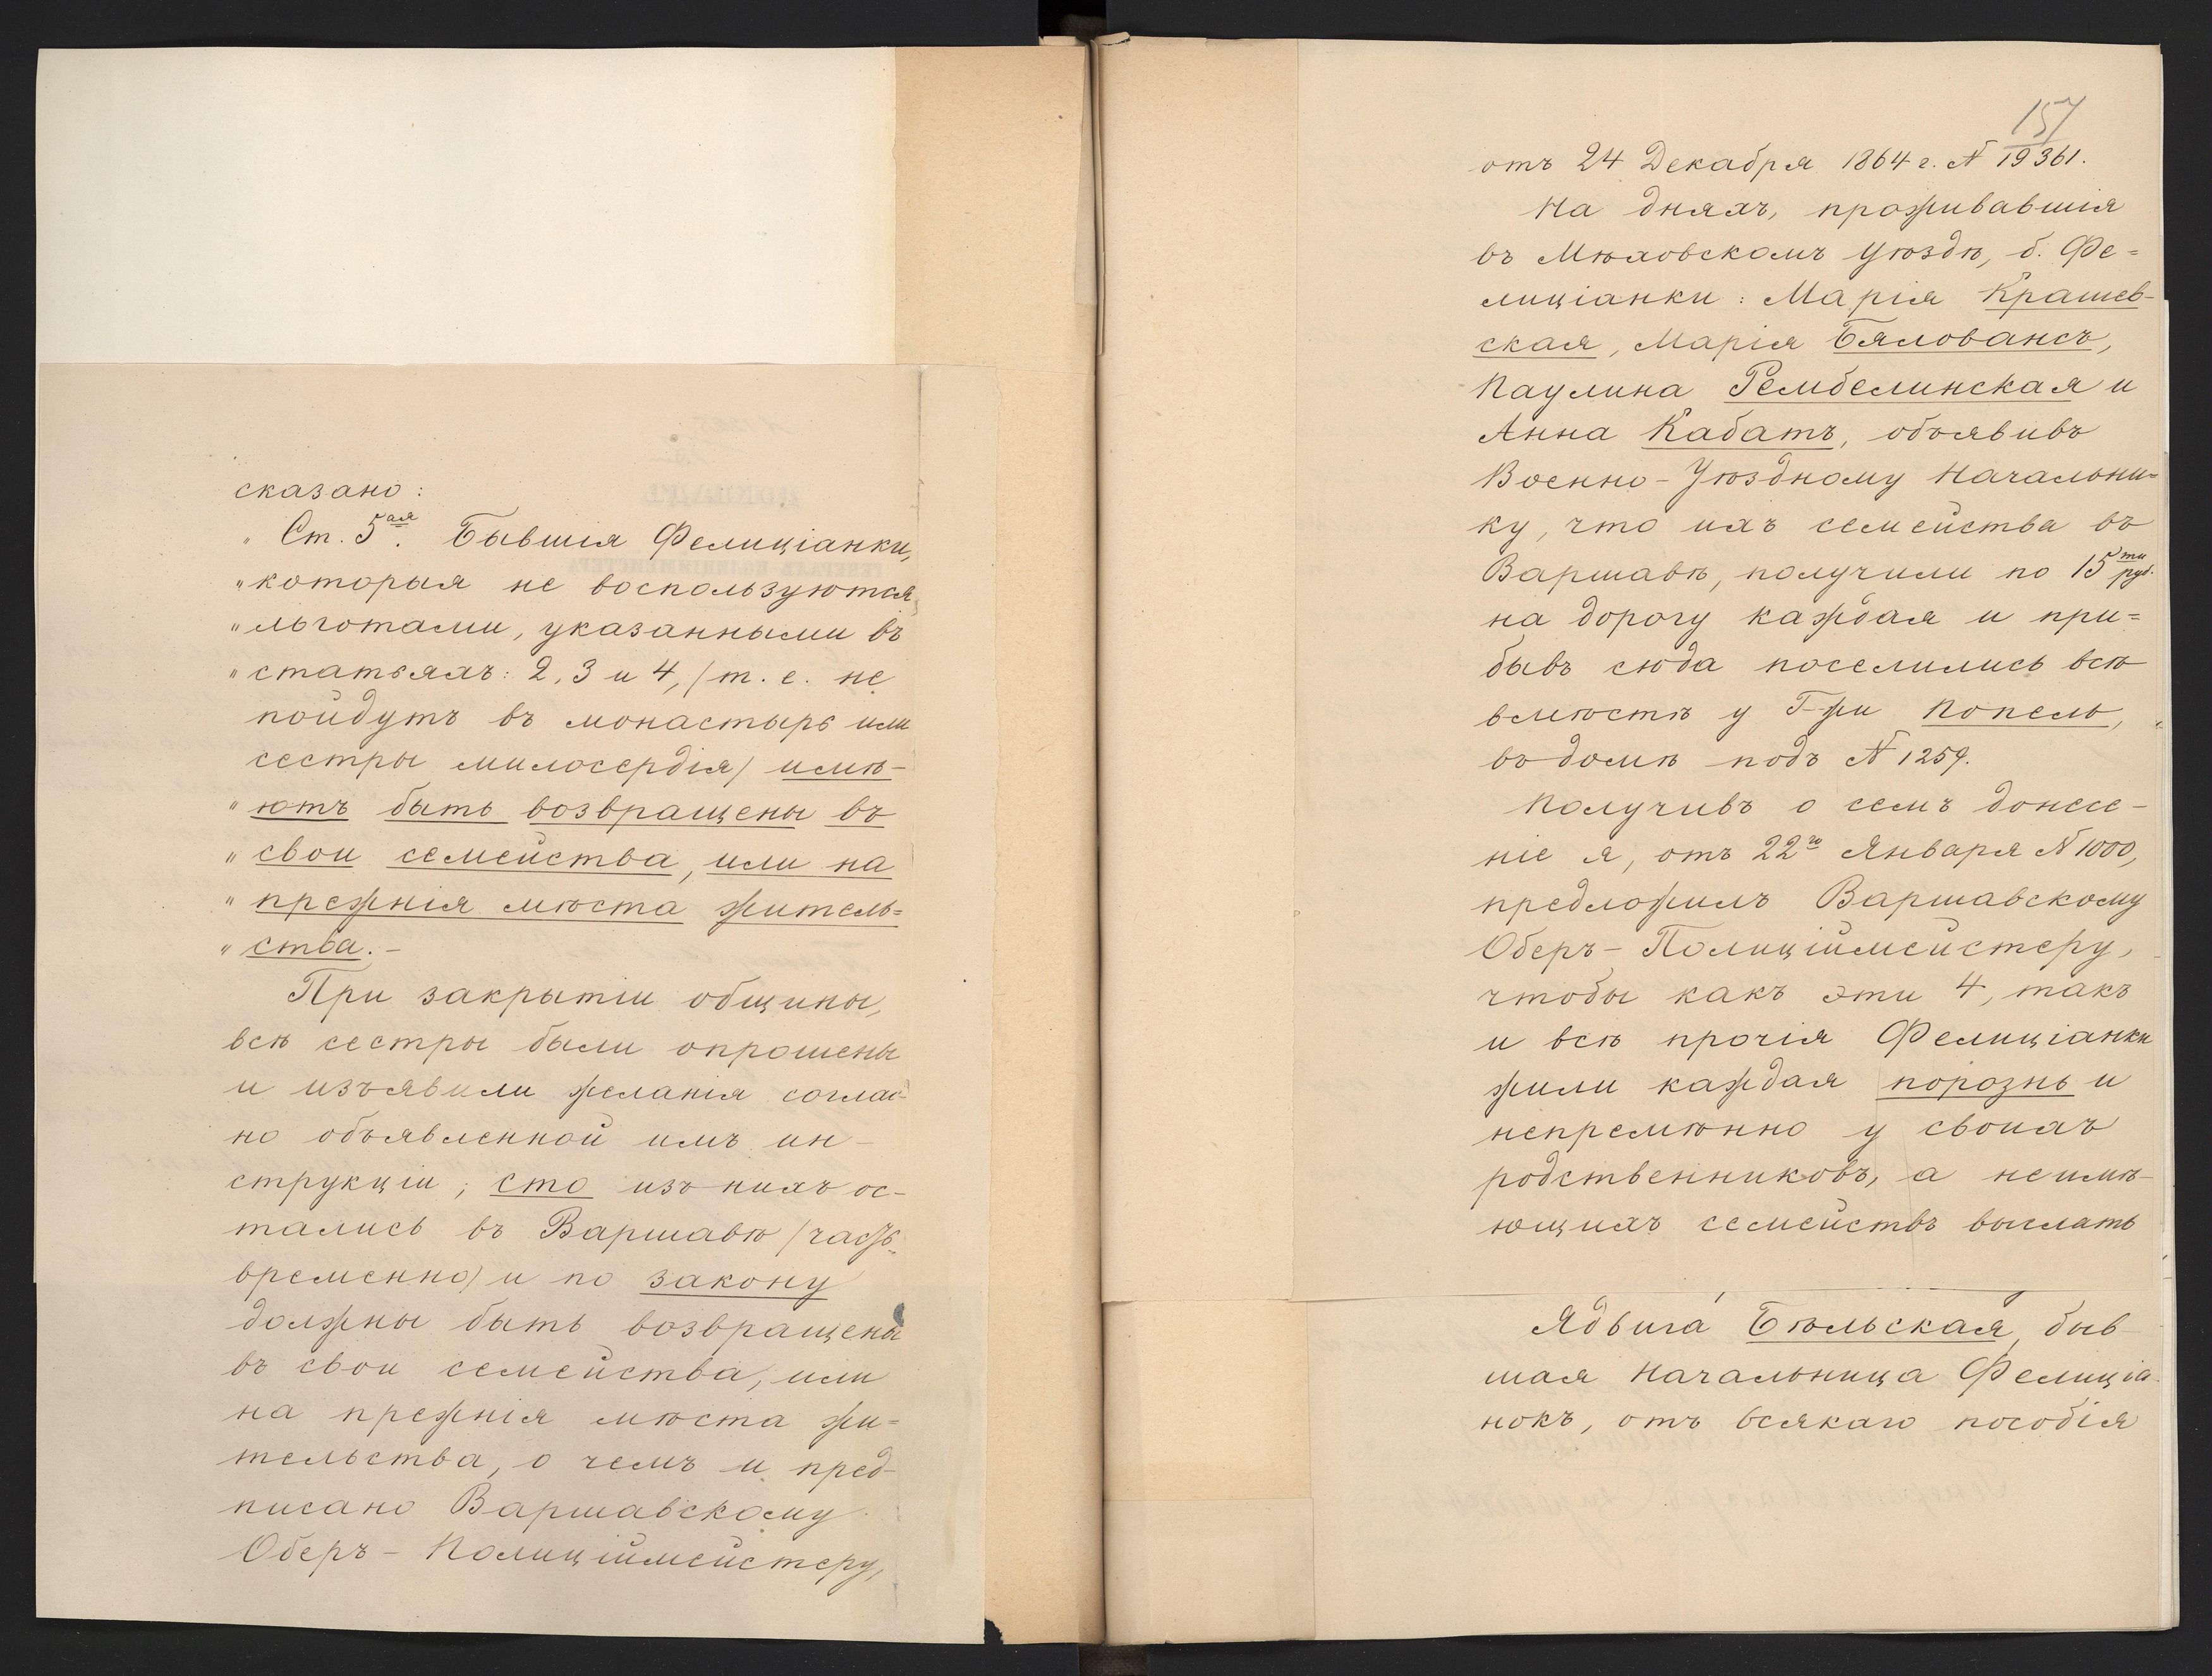 сказано:
„Ст. 5ая. Бывшія Фелиціанки,
„которыя не воспользуются
„льготами, указанными въ
„статьяхъ: 2, 3 и 4, /т. е. не
пойдутъ въ монастырь или
сестры милосердія/ имѣ-
„ютъ быть возвращены въ
„свои семейства, или на
„прежнія мѣста житель=
„ства. –
При закрытіи общины,
всѣ сестры были опрошены
и изъявили желанія соглас-
но объявленной имъ ин-
струкціи; сто изъ нихъ ос-
тались въ Варшавѣ /часть
временно/ и по закону
должны быть возвращены
въ свои семейства, или
на прежнія мѣста жи=
тельства, о чемъ и пред-
писано Варшавскому
Оберъ-Полиціймейстеру,
157
отъ 24 Декабря 1864 г. № 19361.
На дняхъ, проживавшія
въ Мѣховскомъ Уѣздѣ, б. Фе=
лиціанки: Марія Крашев-
ская, Марія Бяловансъ,
Паулина Рембелинская и
Анна Кабатъ, объявивъ
Военно-Уѣздному Начальни=
ку, что ихъ семейства въ
Варшавѣ, получили по 15ти руб.
на дорогу каждая и при=
бывъ сюда поселились всѣ
вмѣстѣ у Г-жи Попель,
въ домѣ подъ № 1259.
Получивъ о семъ донесе-
ніе я, отъ 22го Января № 1000,
предложилъ Варшавскому
Оберъ-Полиціймейстеру,
чтобы какъ эти 4, такъ
и всѣ прочія Фелиціанки
жили каждая порознь и
непремѣнно у своихъ
родственниковъ, а неимѣ-
ющихъ семействъ выслать
Ядвига Бѣльская, быв-
шая Начальница Фелиціа-
нокъ, отъ всякаго пособія